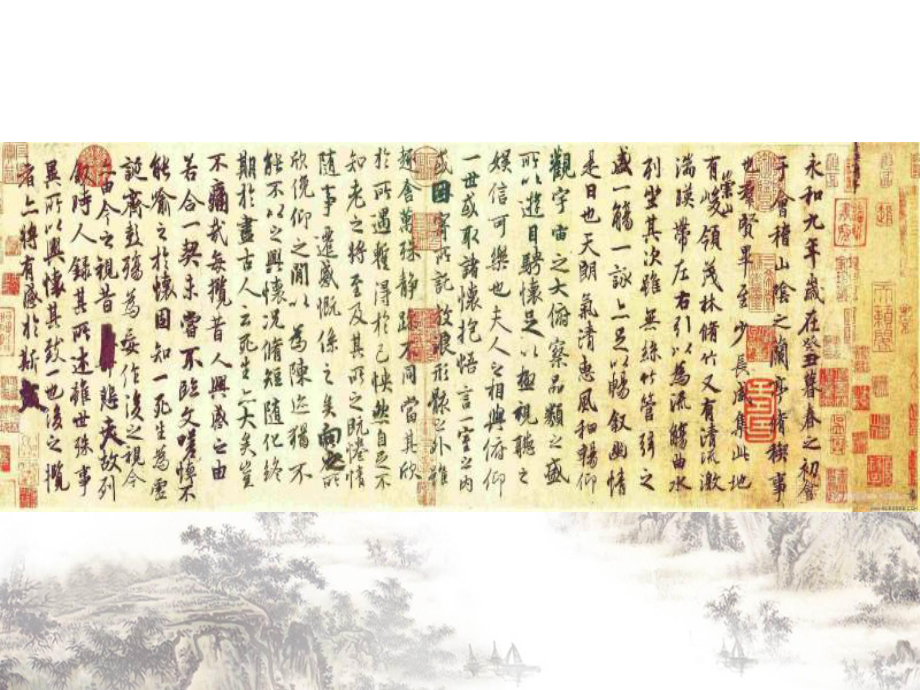 永和九年歲在癸丑暮春之初會
于會稽山陰之蘭亭脩稧事
也羣賢畢至少長咸集此地
有崇山峻領茂林脩竹又有清流激
湍暎帶左右引以為流觴曲水
列坐其次雖無絲竹管弦之
盛一觴一詠亦足以暢敘幽情
是日也天朗氣清惠風和暢仰
觀宇宙之大俯察品類之盛
所以遊目騁懷足以極視聽之
娛信可樂也夫人之相與俯仰
一世或取諸懷抱悟言一室之內
或因寄所託放浪形骸之外雖
趣舍萬殊静躁不同當其欣
於所遇暫得於己怏然自足不
知老之將至及其所之既惓情
隨事遷感慨係之矣向之所
欣俛仰之間以為陳迹猶不
能不以之興懷況脩短隨化終
期於盡古人云死生亦大矣豈
不痛哉每攬昔人興感之由
若合一契未嘗不臨文嗟悼不
能喻之於懷固知一死生為虛
誕齊彭殤為妄作後之視今
亦由今之視昔悲夫故列
敘時人錄其所述雖世殊事
異所以興懷其致一也後之攬
者亦將有感於斯文